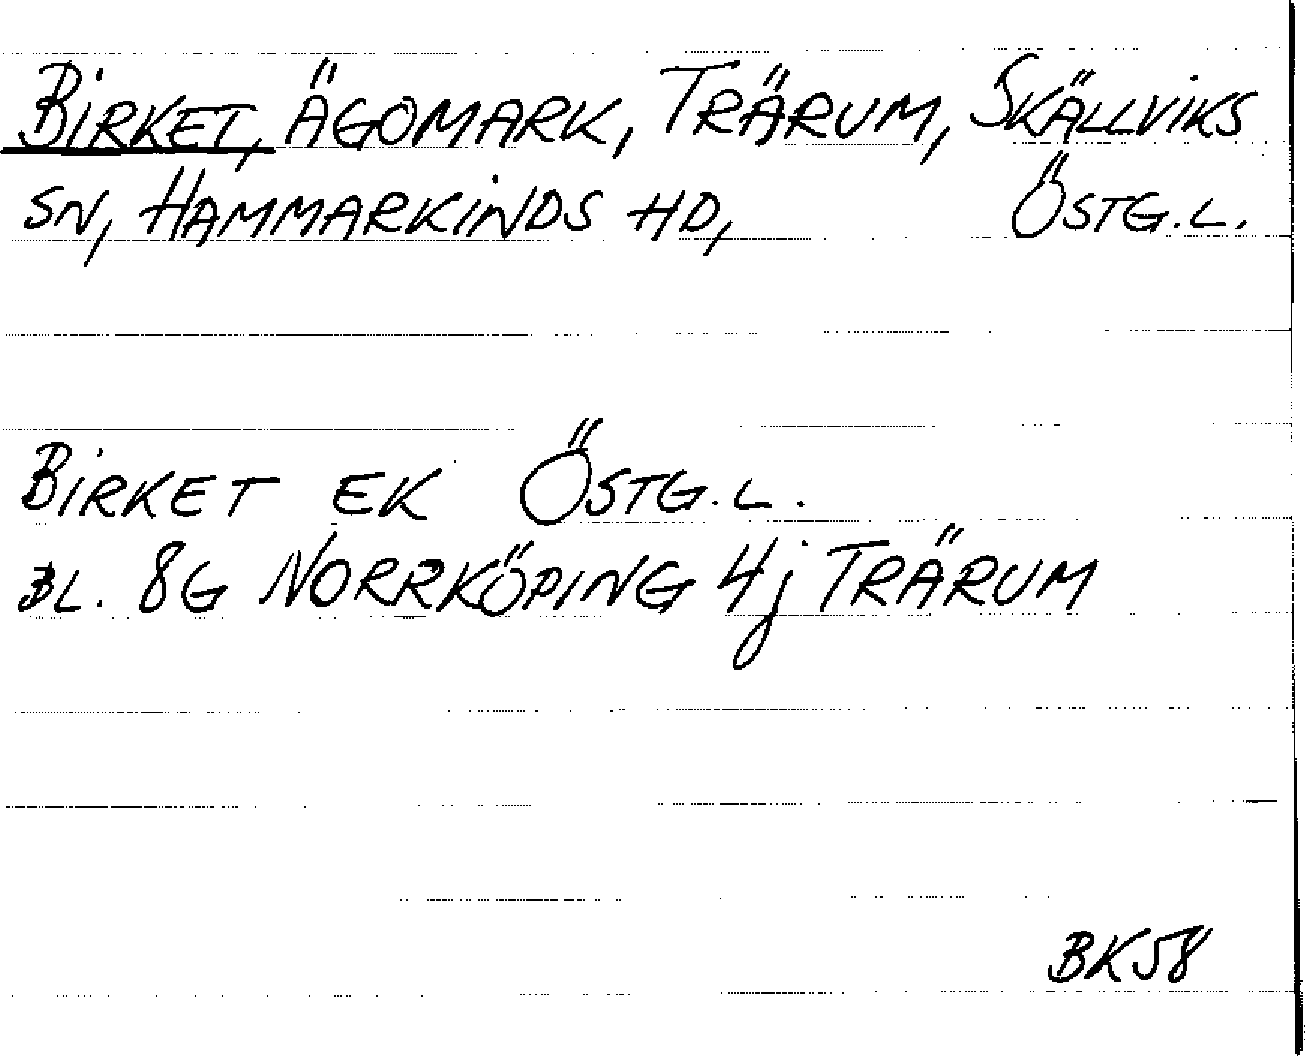 BIRKET, ÄGOMARK, TRÄRUM, SKÄLLVIKS
SN, HAMMARKINDS HD, ÖSTG.L.
BIRKET EK ÖSTG.L.
BL. 8G NORRKÖPING 4j TRÄRUM
BK58